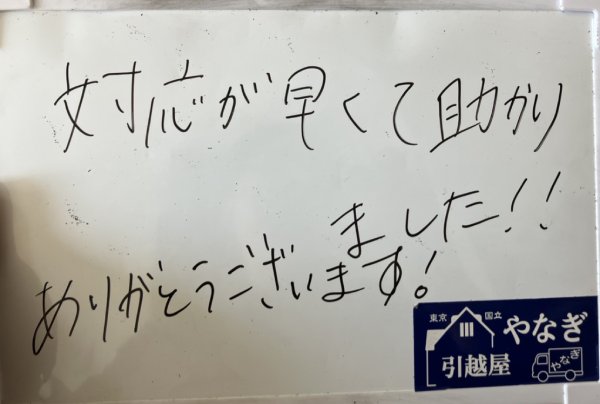 対応が早くて助かり
ました!!
ありがとうございます!
東京 国立
やなぎ
引越屋
やなぎ